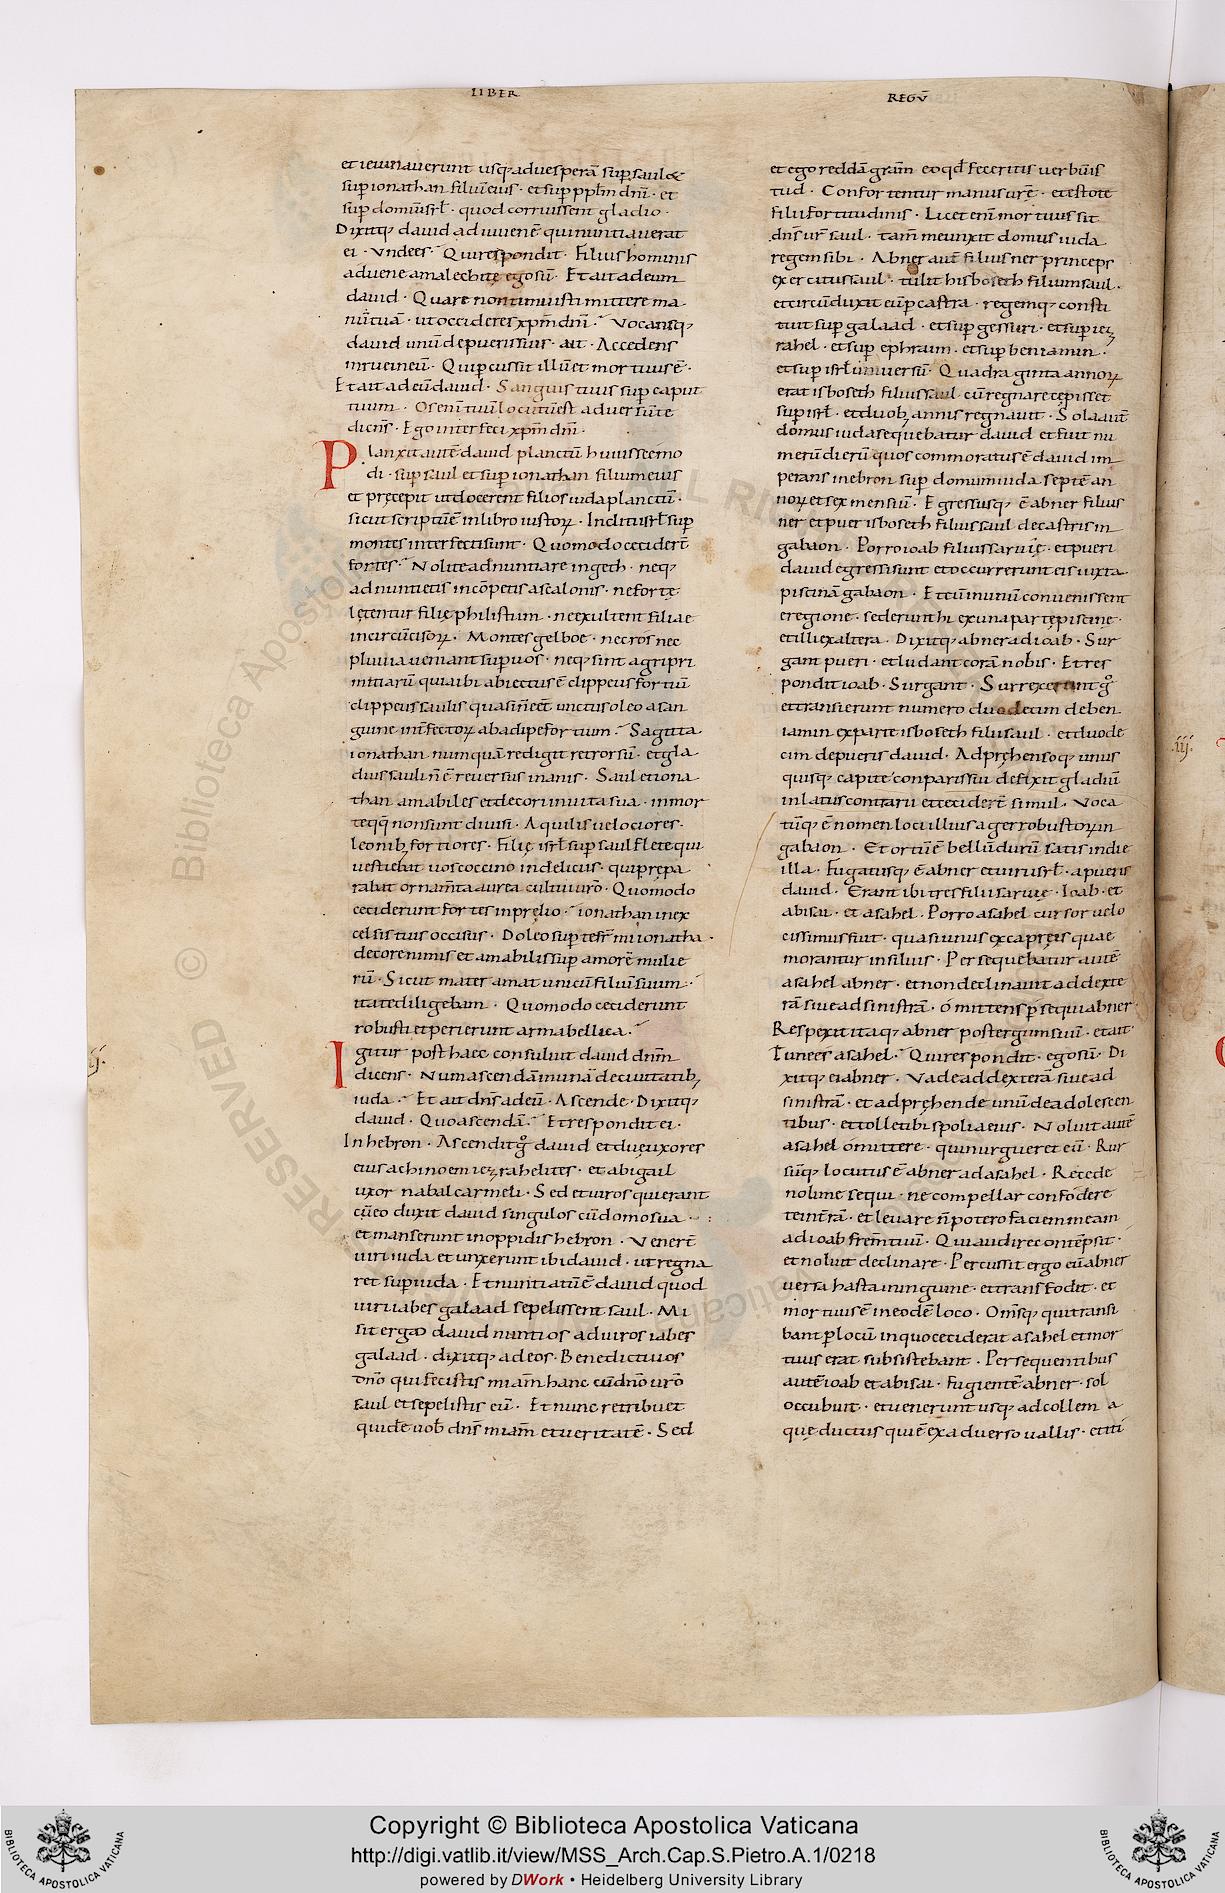 LIBER
REGŪ
et ieiunauerunt usq; ad uesperā sup saul &
sup ionathan filiū eius · et sup pplm dn̄i · et
sup domū isrł · quod corruissent gladio ·
Dixitq; dauid ad iuuenē qui nuntiauerat
ei · Vnde es · Qui respondit · Filius hominis
aduene amalechite ego sū · Et ait ad eum
dauid · Quare non timuisti mittere ma
nū tuā · ut occideres xpm dn̄i · Vocansq;
dauid unū de pueris suis · ait · Accedens
inrue in eū · Qui percussit illū et mortuus ē ·
Et ait ad eū dauid · Sanguis tuus sup caput
tuum · Os enī tuū locutū est aduersū te
dicens · Ego interfeci xpm dn̄i ·
Planxit autē dauid planctū huiuscemo
di · sup saul et sup ionathan filium eius
et precepit ut docerent filios iuda planctū ·
sicut scriptū ē in libro iustoꝝ · Inditi isrł sup
montes interfecti sunt · Quomodo cecider̄t
fortes · Nolite adnuntiare in geth · neq;
adnuntietis in cōpetis ascalonis · ne forte
lętentur filię philistium · ne exultent filiae
incircūcisoꝝ · Montes gelboe · nec ros nec
pluuia ueniant sup uos · neq; sint agri pri
mitiarū quia ibi abiectus ē clippeus fortiū
clippeus saulis quasi n̄ eēt unctus oleo a san
guine int̄fectoꝝ ab adipe fortium · Sagitta
ionathan numquā redigit retrorsū · et gla
dius sauli n̄ ē reuersus inanis · Saul et iona
than amabiles et decori in uita sua · in mor
te qq nonsunt diuisi · Aquilis uelociores ·
leonib; fortiores · Filię isrł sup saul flete qui
uestiebat uos coccino in deliciis · qui prępa
rabat ornam̄ta aurea cultui ur̄o · Quomodo
ceciderunt fortes in prelio · ionathan in ex
celsis tuis occisus · Doleo sup te fr̄ mi ionatha ·
decore nimis et amabilis sup amorē mulie
rū · Sicut mater amat unicū filiū suum ·
ita te diligebam · Quomodo ceciderunt
robusti et perierunt arma bellica ·
ij.
Igitur post haec consuluit dauid dn̄m
dicens · Num ascendā in unā de ciuitatib;
iuda · Et ait dn̄s ad eū · Ascende · Dixitq;
dauid · Quo ascendā · Et respondit ei ·
In hebron · Ascendit g̊ dauid et duę uxores
eius achinoem iezrahelites · et abigail
uxor nabal carmeli · Sed et uiros qui erant
cū eo duxit dauid singulos cū domo sua ·
et manserunt in oppidis hebron · Vener̄t
uiri iuda et unxerunt ibi dauid · ut regna
ret sup iuda · Et nuntiatū ē dauid quod
uiri iabes galaad sepelissent saul · Mi
sit ergo dauid nuntios ad uiros iabes
galaad · dixitq; ad eos · Benedicti uos
dn̄o qui fecistis miam̄ hanc cū dn̄o ur̄o
saul et sepelistis eū · Et nunc retribuet
quidē uob̄ dn̄s miam̄ et ueritatē · Sed
et ego reddā gram̄ eo qd̄ feceritis uerbū is
tud · Confortentur manus ur̄ę · et estote
filii fortitudinis · Licet enī mortuus sit
dn̄s ur̄ saul · tam̄ me unxit domus iuda
regem sibi · Abner aut̄ filius ner princeps
exercitus saul · tulit hisboseth filium saul ·
et circūduxit eū p castra · regemq; consti
tuit sup galaad · et sup gessuri · et sup iez
rahel · et sup ephraim · et sup beniamin ·
et sup isrł uniuersū · Quadraginta annoꝝ
erat isboseth filius saul cū regnare cepisset
sup isrł · et duob; annis regnauit · Sola aut̄
domus iuda sequebatur dauid et fuit nu
merū dierū quos commoratus ē dauid im
perans in ebron sup domum iuda septē an
noꝝ et sex mensiū · Egressusq; ē abner filius
ner et pueri isboseth filius saul de castris in
gabaon · Porro ioab filius saruię · et pueri
dauid egressi sunt et occurrerunt eis iuxta
piscinā gabaon · Et cū in unū conuenissent
e regione · sederunt hi ex una parte piscinę ·
et illi ex altera · Dixitq; abner ad ioab · Sur
gant pueri · et ludant corā nobis · Et res
pondit ioab · Surgant · Surrexerunt g̊
et transierunt numero duodecim de ben
iamin ex parte isboseth filii saul · et duode
cim de pueris dauid · Adprehensoq; unus
quisq; capite conparis sui defixit gladiū
in latus contrarii et cecider̄t simul · Voca
tūq; ē nomen loci illius ager robustorū in
gabaon · Et ortū ē bellū durū satis in die
illa · Fugatusq; ē abner et uiri isrł · a pueris
dauid · Erant ibi tres filii saruię · Ioab · et
abisai · et asahel · Porro asahel cursor uelo
cissimus fuit · quasi unus ex capreis quae
morantur in siluis · Persequebatur autē
asahel abner · et non declinauit ad dexte
rā siue ad sinistrā · omittens psequi abner
Respexit itaq; abner post tergum suū · et ait
Tu nees asahel · Qui respondit · ego sū · Di
xitq; ei abner · Vade ad dexterā siue ad
sinistrā · et adprehende unū de adolescen
tibus · et tolle tibi spolia eius · Noluit autē
asahel omittere · quin urgueret eū · Rur
sūq; locutus ē abner ad asahel · Recede
noli me sequi · ne compellar confodere
te in tr̄ā · et leuare n̄ potero faciem meam
ad ioab fr̄em tuū · Qui audire contēpsit ·
et noluit declinare · Percussit ergo eū abner
uersa hasta in inguine · et transfodit · et
mortuus ē in eodē loco · Om̄sq; qui transi
bant p locū in quo ceciderat asahel et mor
tuus erat subsistebant · Persequentibus
autē ioab et abisai · fugientē abner · sol
occubuit · et uenerunt usq; ad collem a
quę ductus qui ē ex aduerso uallis · et iti
.iij.
Copyright © Biblioteca Apostolica Vaticana
http://digi.vatlib.it/view/MSS_Arch.Cap.S.Pietro.A.1/0218
powered by DWork • Heidelberg University Library
BIBLIOTECA APOSTOLICA VATICANA
BIBLIOTECA APOSTOLICA VATICANA